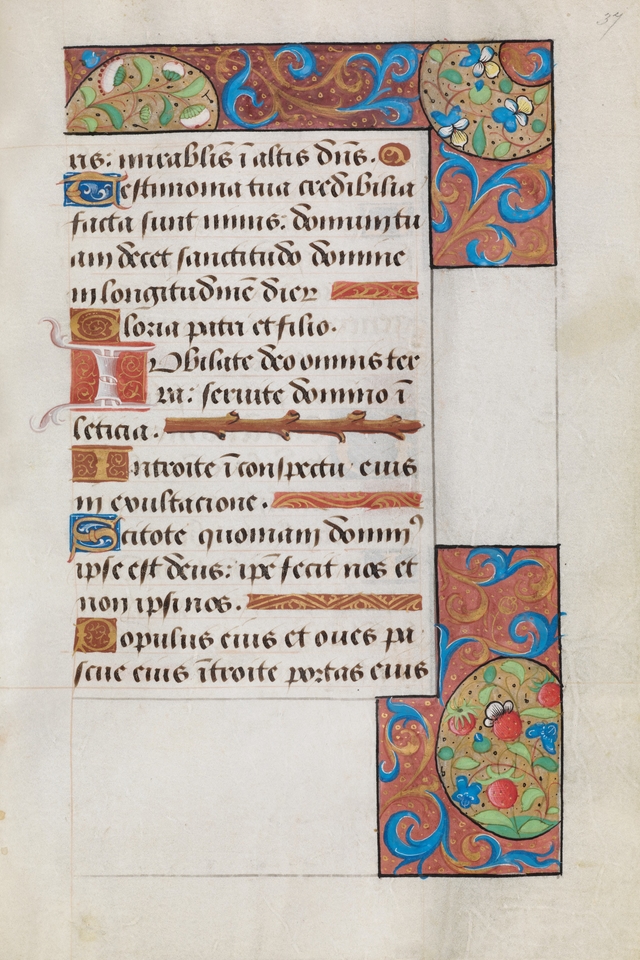 37
ris: mirabilis ī altis dn̄s.
Testimonia tua credibilia
facta sunt nimis: domum tu
am decet sanctitudo domine
in longitudinē dier
Gloria patri et filio.
IObilate deo omnis ter
ra: seruite domino ī
leticia.
Introite ī conspectu eius
in exultacione.
Scitote quoniam dominꝰ
ipse est deus: ip̄e fecit nos et
non ipsi nos.
Populus eius et oues pa
scue eius ītroite portas eius